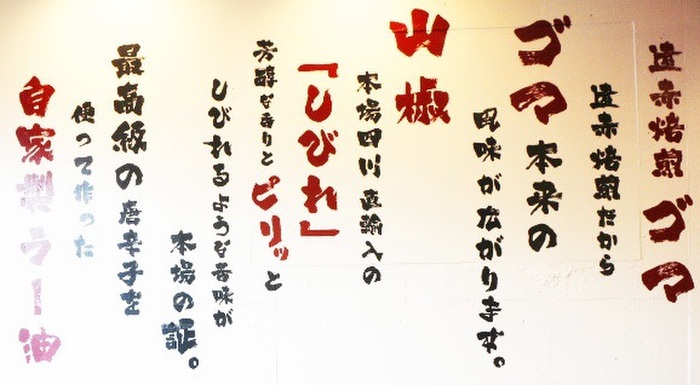 遠赤焙煎ゴマ
遠赤焙煎だから
ゴマ本来の
風味が広がります。
山椒
本場四川直輸入の
「しびれ」
芳醇な香りとピリッと
しびれるような辛味が
本場の証。
最高級の唐辛子を
使って作った
自家製ラー油